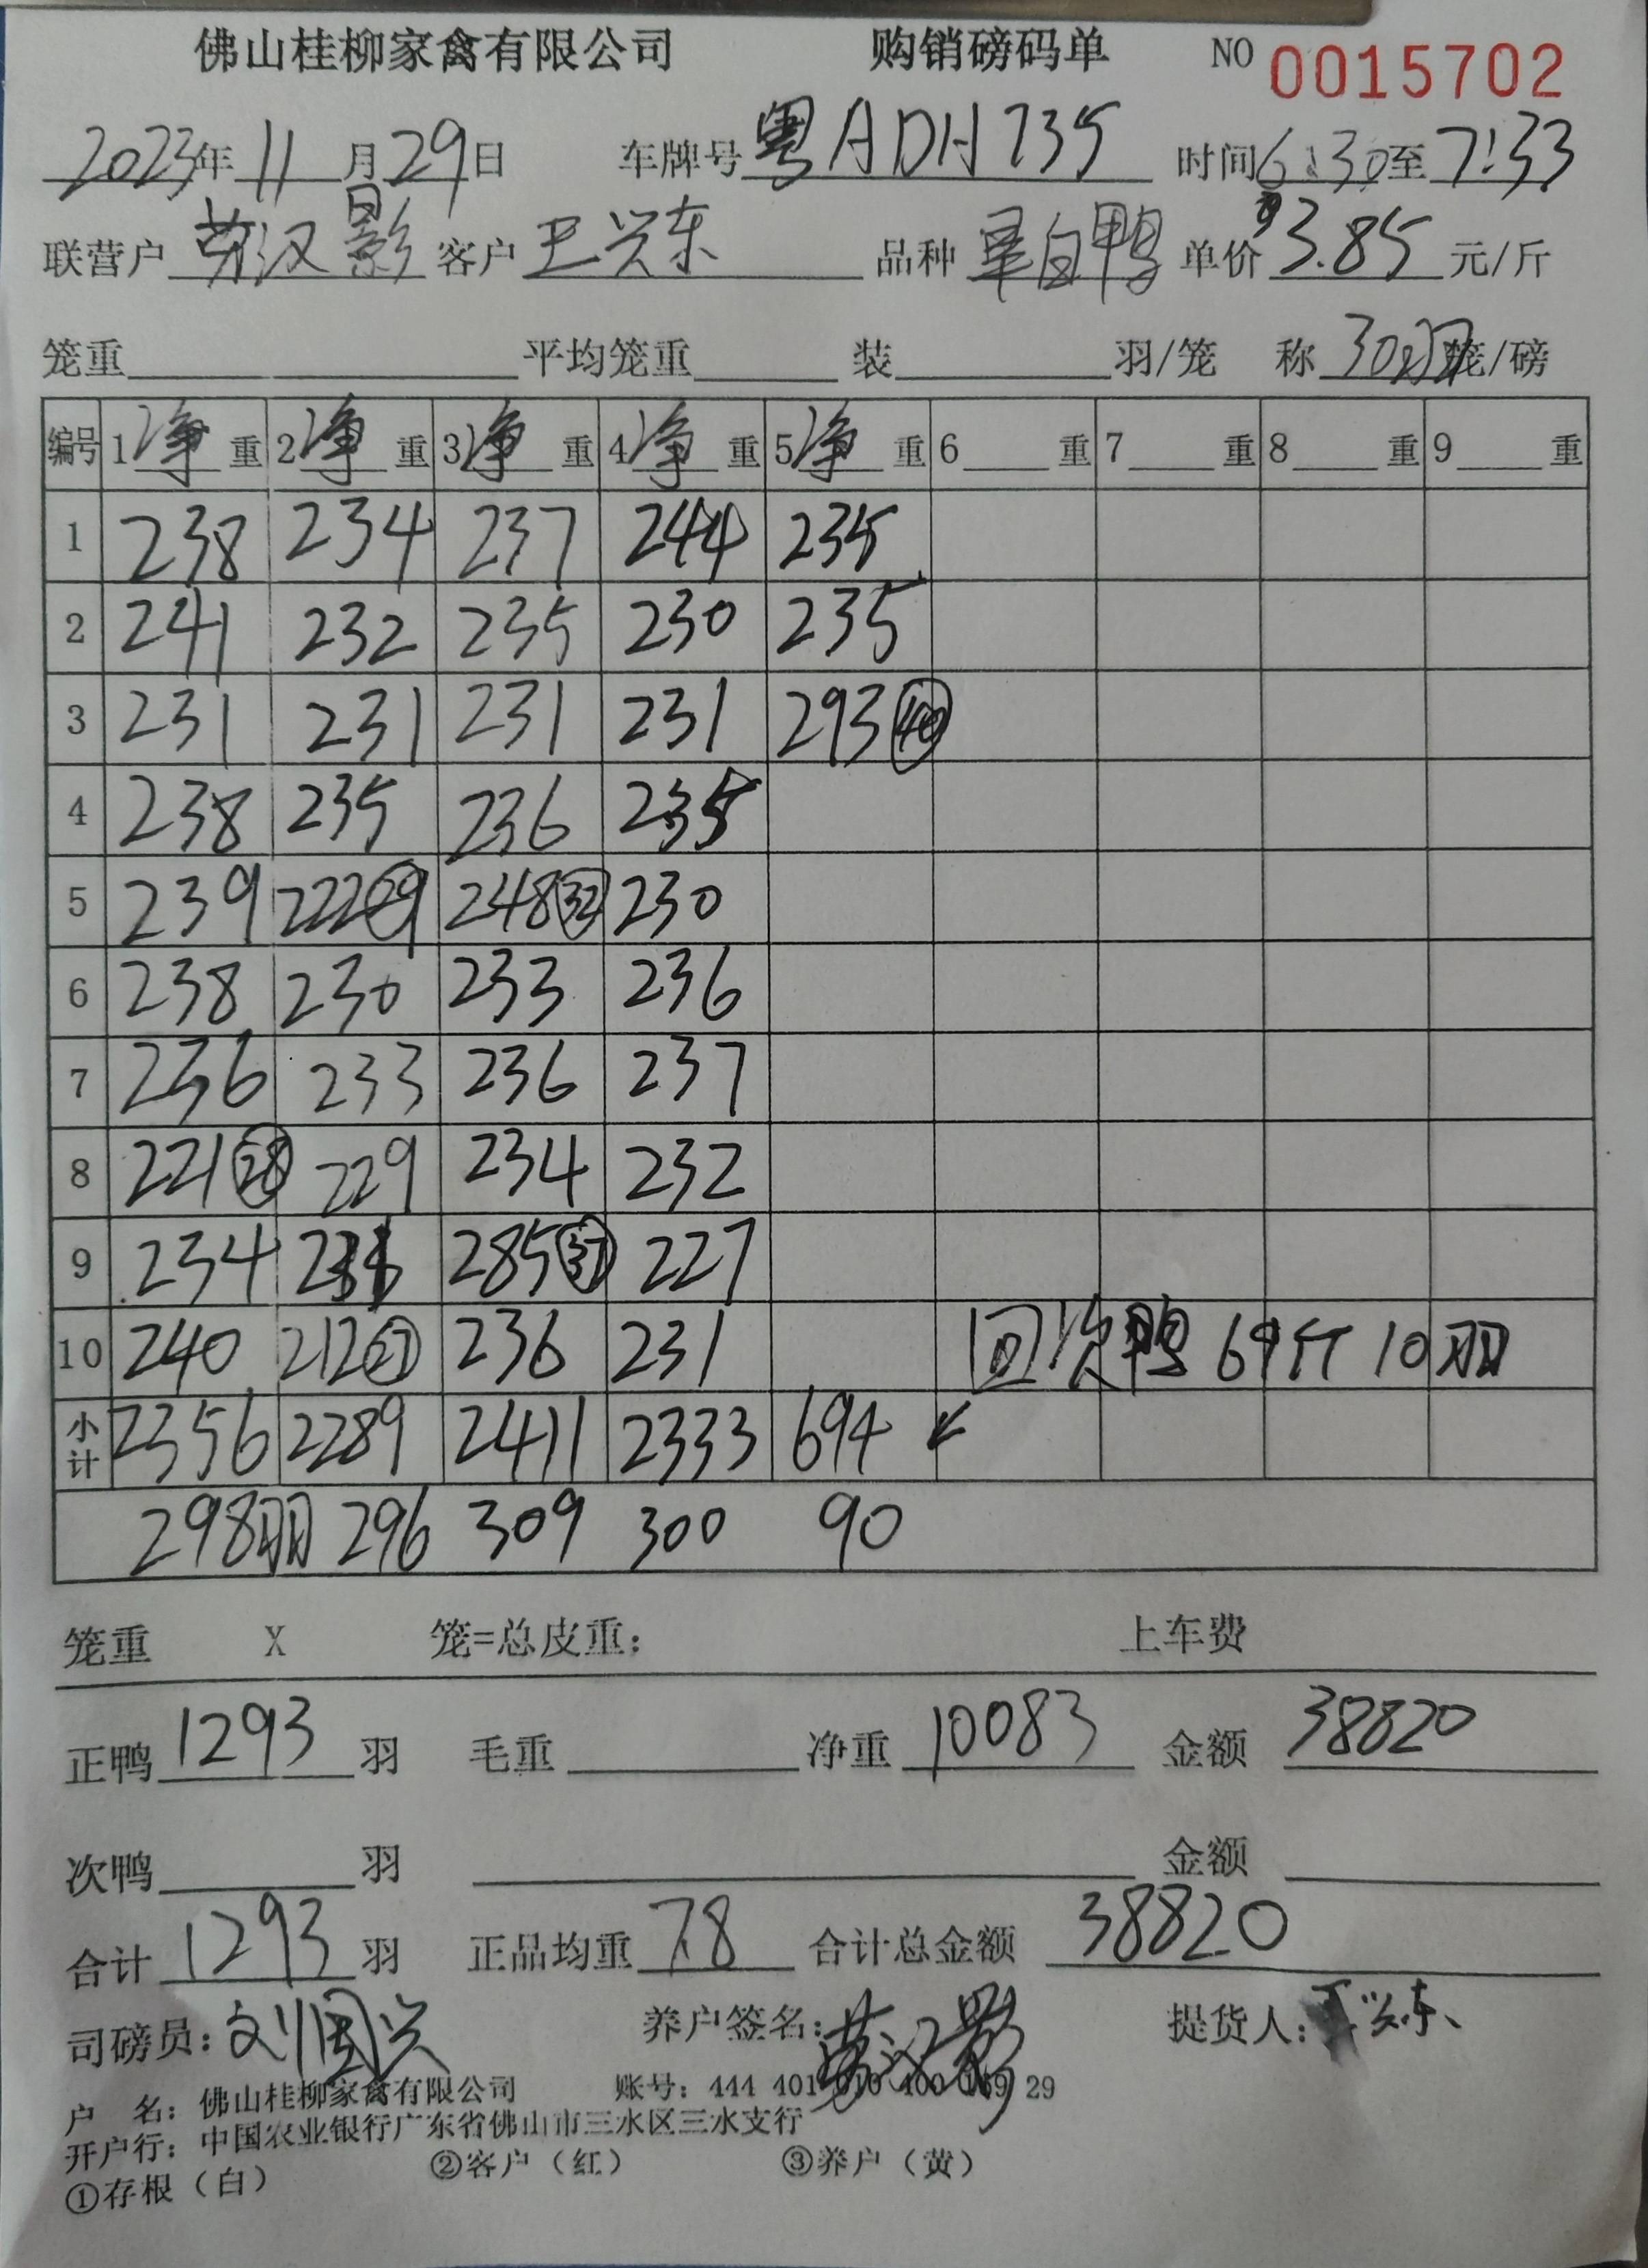 佛山桂柳家禽有限公司 购销磅码单 NO 0015702
2023年11月29日 车牌号粤ADH735 时间6:30至7:33
联营户 劳汉影 客户 王兴东 品种 白鸭 单价 3.85 元/斤
笼重 平均笼重 装 羽/笼 称 30羽 笼/磅
编号 1净重 2净重 3净重 4净重 5净重 6 重 7 重 8 重 9 重
1 238 234 237 244 235
2 241 232 235 230 235
3 231 231 231 231 293㊵
4 238 235 236 235
5 239 222㉙ 248㉜ 230
6 238 230 233 236
7 236 233 236 237
8 221㉘ 229 234 232
9 234 231 285㊲ 227
10 240 212㉗ 236 231 回次鸭 69斤 10羽
小计 2356 2289 2411 2333 694
298羽 296 309 300 90
笼重 X 笼=总皮重: 上车费
正鸭 1293 羽 毛重 净重 10083 金额 38820
次鸭 羽 金额
合计 1293 羽 正品均重 7.8 合计总金额 38820
司磅员: 刘国兴 养户签名: 劳汉影 提货人: 王兴东
户 名: 佛山桂柳家禽有限公司 账号: 444 401 010 400 169 29
开户行: 中国农业银行广东省佛山市三水区三水支行
①存根（白） ②客户（红） ③养户（黄）